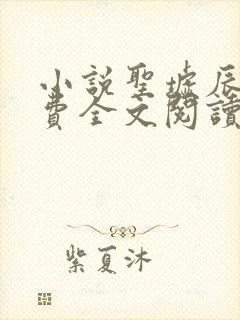 小説聖墟辰
費全文閱讀
紫夏沐